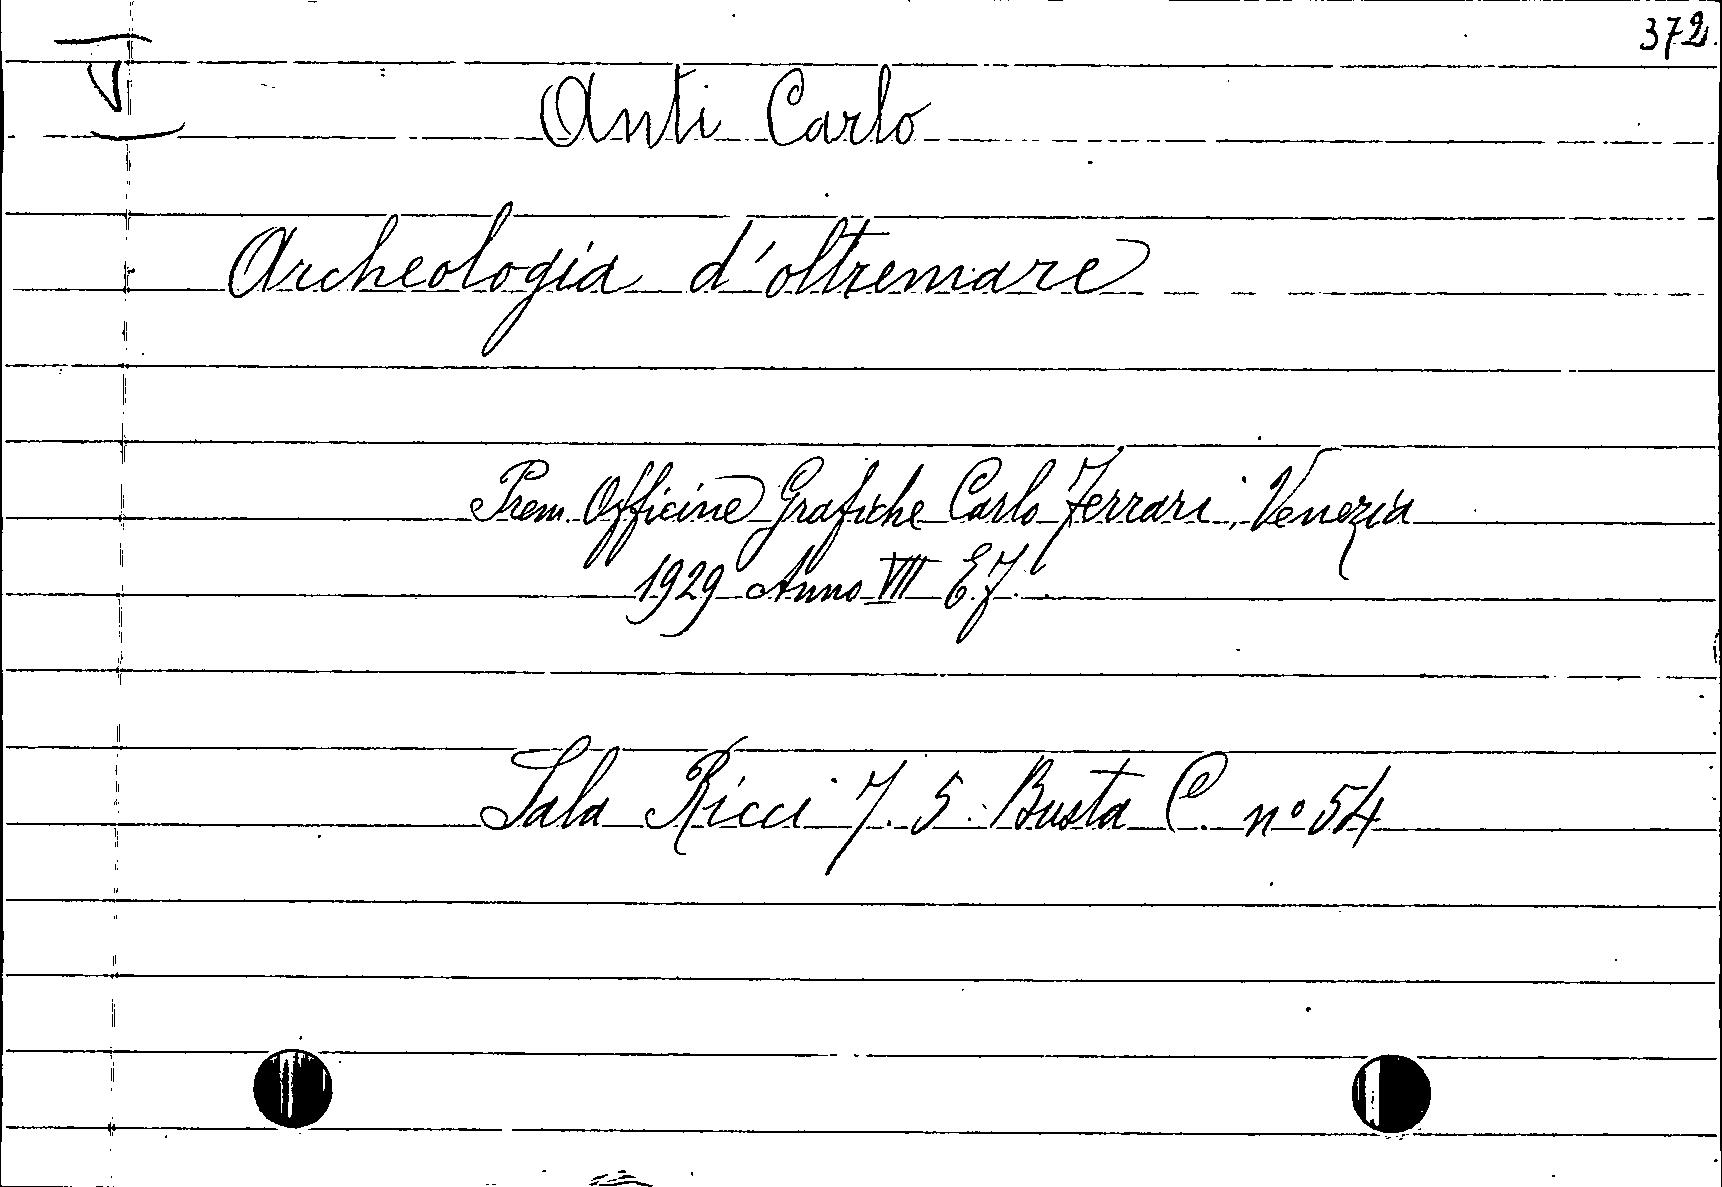 372
V
Anti Carlo
Archeologia d'oltremare
Prem. Officine Grafiche Carlo Ferrari, Venezia
1929 Anno VII E.F.
Sala Ricci F. 5. Busta C. n° 54